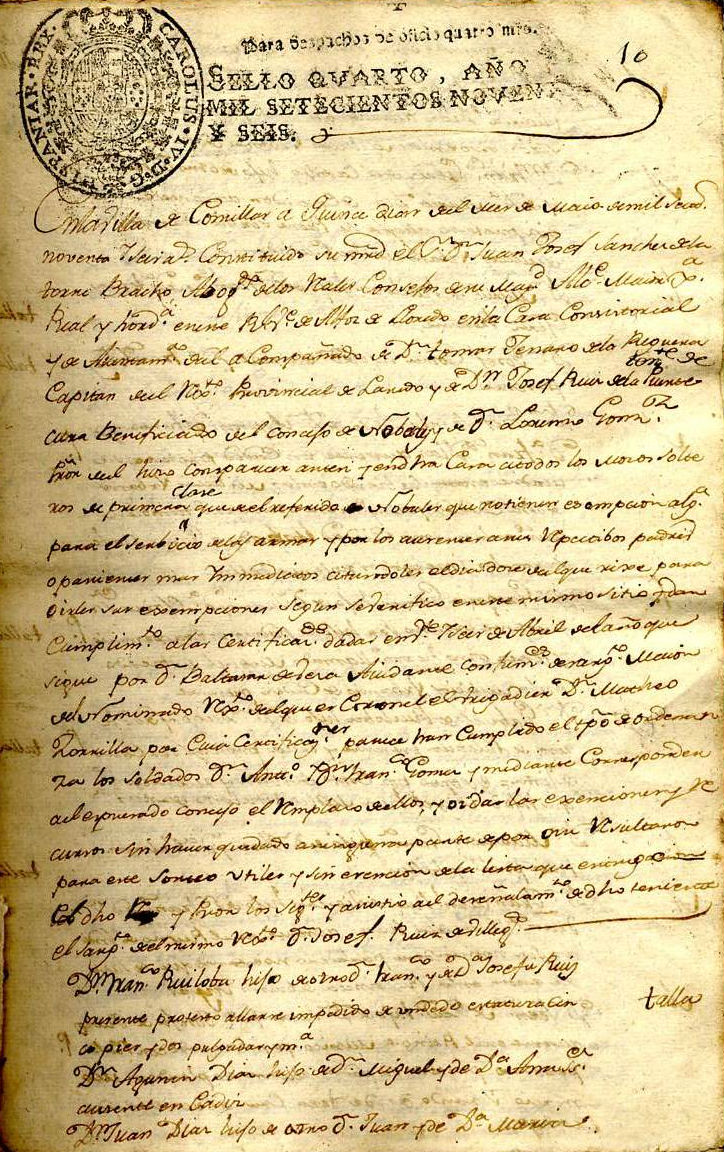 CAROLUS·IV·D·G·HISPANIAR·REX·
Para despachos de oficio quatro mrs.
10
SELLO QVARTO, AÑO
MIL SETECIENTOS NOVEN
Y SEIS.
En la Villa de Comillas a Quince dias del Mes de Maio de mil setec.
noventa y seis a. Constituido su mrd el Sr. Dn Juan Josef Sanchez de la
torre Abog.do de los Rales Consejos de su Mag.d Alle. Maior pr.
Real y hord.a en este de Alfoz de Lloredo en la Casa Consistorial
y de Aiuntam.to del aCompañado de Dn. tomas Tenazo de la Reguera
ten.te de
Capitan del Rexto. Provincial de Laredo y de Dn. Josef Ruiz de la Puente
cura Beneficiado del concejo de Nobales y de Dn. Lorenzo Gomz.
Pror. del hizo comparecer ante si y en dha Casa a todos los mozos solte
ros de primera clase que de el referido Nobales que no tienen esempcion alg.a
para el serbicio de las armas y por los ausentes a sus padres
o parientes mas Inmediatos citandoles el dia doce del que rixe para
oirles sus exempciones segun se berifico en este mismo sitio y dan
Cumplim.to a las Certificaz.es dadas en Seis de Abril del año que
sigue por Dn. Baltasar de Ayudante con funz.es de sarg.to Maior
del Nominado Rexto. del que es Coronel el Brigadier Dn. Matheo
Zorrilla, por Cuia Certificaz.n parece han Cumplido el tpo. de ordenan
za los soldados Dn. Anto. y Dn. Fran.co Gomez y mediante Corresponder
a el espresado concejo el Remplazo de ellos, y oidas las exenciones y re
cursos sin haver quedado a ninguna parte de por oir Resultaron
para este Sorteo Utiles y sin exencion de la lista que
dho y Pror. los sig.tes y asistio a el de señalam.to de dho teniente
el sarg.to del mismo Rexto. Dn. Josef Ruiz de
Dn. Fran.co Ruiloba hijo de otro Dn. Fran.co y de Da. Josefa Ruiz
presente protexto allarse impedido de un dedo estatura cin
co pies y dos pulgadas y m.a
talla
Dn. Agustin Diaz hijo de Dn. Miguel y de Da. Ana
ausente en Cadiz
Dn. Juan Diaz hijo de otro Dn. Juan y de Da. Maria